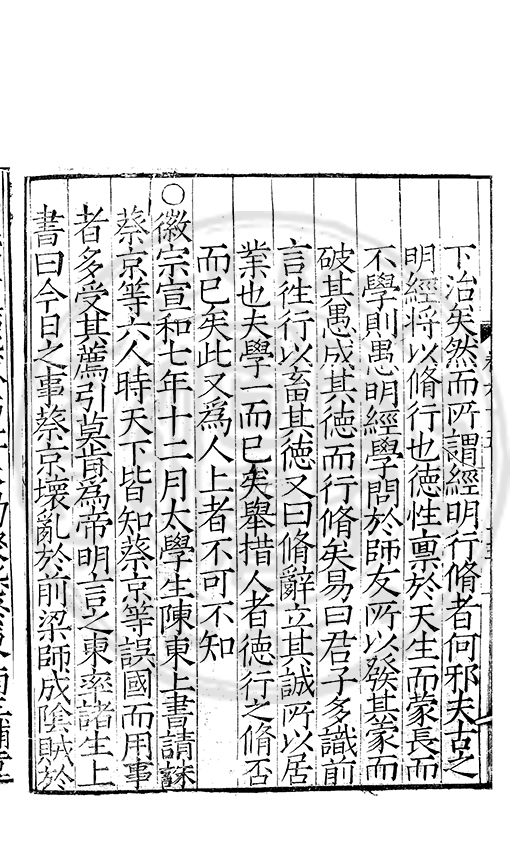 下治矣然而所謂經明行脩者何邪夫古之
明經將以脩行也徳性禀於天生而蒙長而
不學則愚明經學問於師友所以發其蒙而
破其愚成其徳而行脩矣易曰君子多識前
言徃行以畜其徳又曰脩辭立其誠所以居
業也夫學一而已矣舉措人者徳行之脩否
而已矣此又爲人上者不可不知
○徽宗宣和七年十二月太學生陳東上書請誅
蔡京等六人時天下皆知蔡京等誤國而用事
者多受其薦引莫肯爲帝明言之東率諸生上
書曰今日之事蔡京壞亂於前梁師成隂賊於